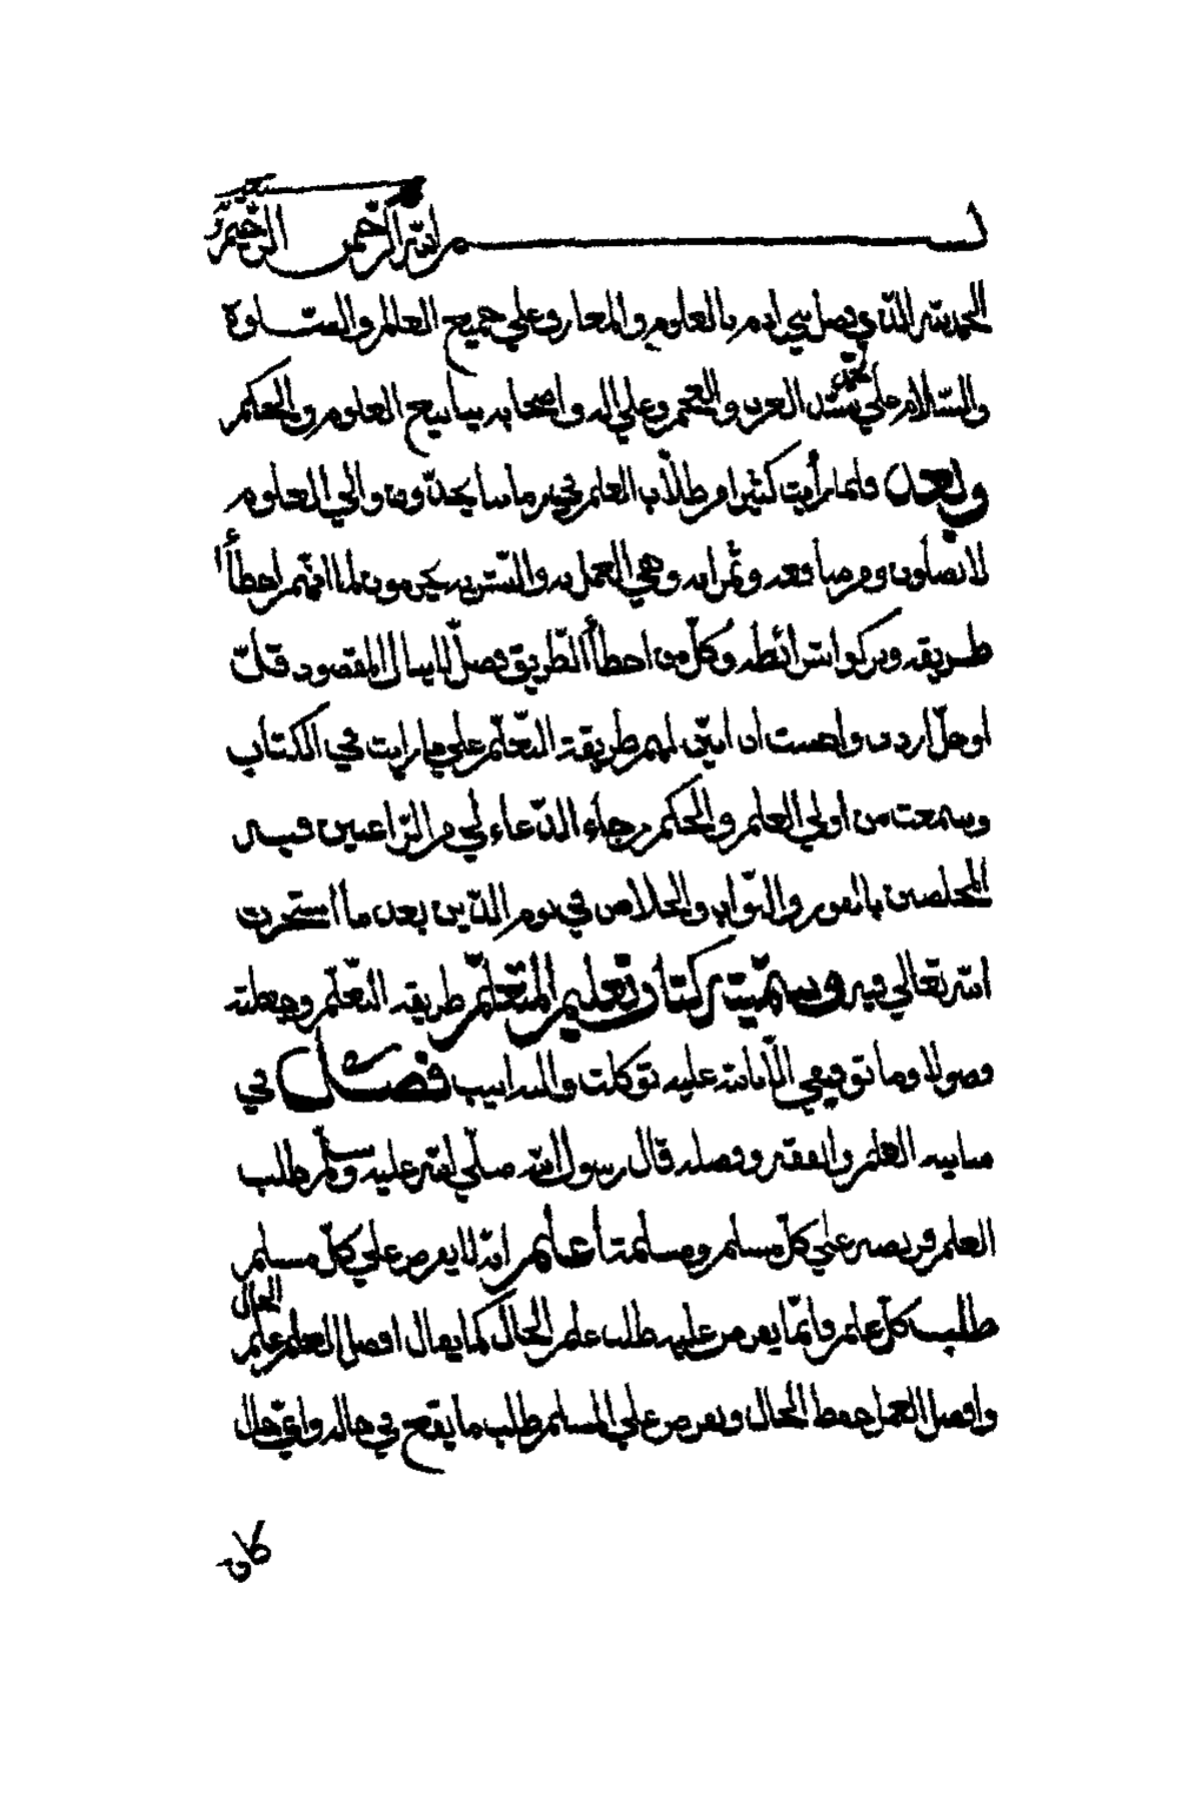 بسم الله الرحمن الرحيم
الحمد لله الذي فضل بني ادم بالعلوم والمعارف علي جميع العالم والصلوة
والسلام علي محمد سيد العرب والعجم وعلي اله واصحابه ينابيع العلوم والحكم
وبعد فلما رأيت كثيرا من طلاب العلم في زماننا يجدون والي العلوم
لا يصلون ومن منافعه وثمراته وهي العمل به والنشر به يحرمون لما انهم اخطأوا
طريقه وتركوا شرائطه وكل من اخطأ الطريق ضل لا ينال المقصود قل
او جل اردت واحببت ان ابين لهم طريقة التعلم علي ما رايت في الكتاب
وسمعت من اولي العلم والحكم رجاء الدعاء لي من الراغبين فيه
المخلصين بالفوز والثواب والخلاص في يوم الدين بعد ما استخرت
الله تعالي فيه وسميته كتاب تعليم المتعلم طريقه التعلم وجعلته
فصولا وما توفيقي الا بالله عليه توكلت واليه انيب فصل في
ماهية العلم والفقه وفضله قال رسول الله صلي الله عليه وسلم طلب
العلم فريضة علي كل مسلم ومسلمة اعلم انه لا يفرض علي كل مسلم
طلب كل علم وانما يفرض عليه طلب علم الحال كما يقال افضل العلم علم الحال
وافضل العمل حفظ الحال ويفرض علي المسلم طلب ما يقع في حاله واي حال
كان